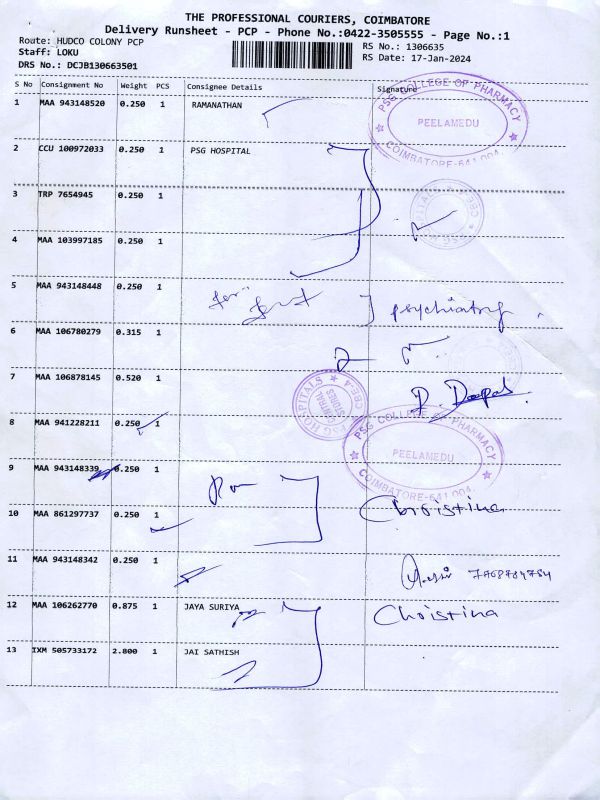 THE PROFESSIONAL COURIERS, COIMBATORE
Delivery Runsheet - PCP - Phone No.:0422-3505555 - Page No.:1
Route: HUDCO COLONY PCP
RS No.: 1306635
Staff: LOKU
RS Date: 17-Jan-2024
DRS No.: DCJB130663501
S No Consignment No Weight PCS Consignee Details Signature
1 MAA 943148520 0.250 1 RAMANATHAN
PSG COLLEGE OF PHARMACY
PEELAMEDU
COIMBATORE-641 004.
2 CCU 100972033 0.250 1 PSG HOSPITAL
3 TRP 7654945 0.250 1
4 MAA 103997185 0.250 1
5 MAA 943148448 0.250 1
psychiatry
6 MAA 106780279 0.315 1
7 MAA 106878145 0.520 1
PSG HOSPITALS
CENTRAL
STORES
CBE-4
8 MAA 941228211 0.250 1
PSG COLLEGE OF PHARMACY
PEELAMEDU
COIMBATORE-641 004.
9 MAA 943148339 0.250 1
10 MAA 861297737 0.250 1 Christina
11 MAA 943148342 0.250 1
12 MAA 106262770 0.875 1 JAYA SURIYA Christina
13 IXM 505733172 2.800 1 JAI SATHISH